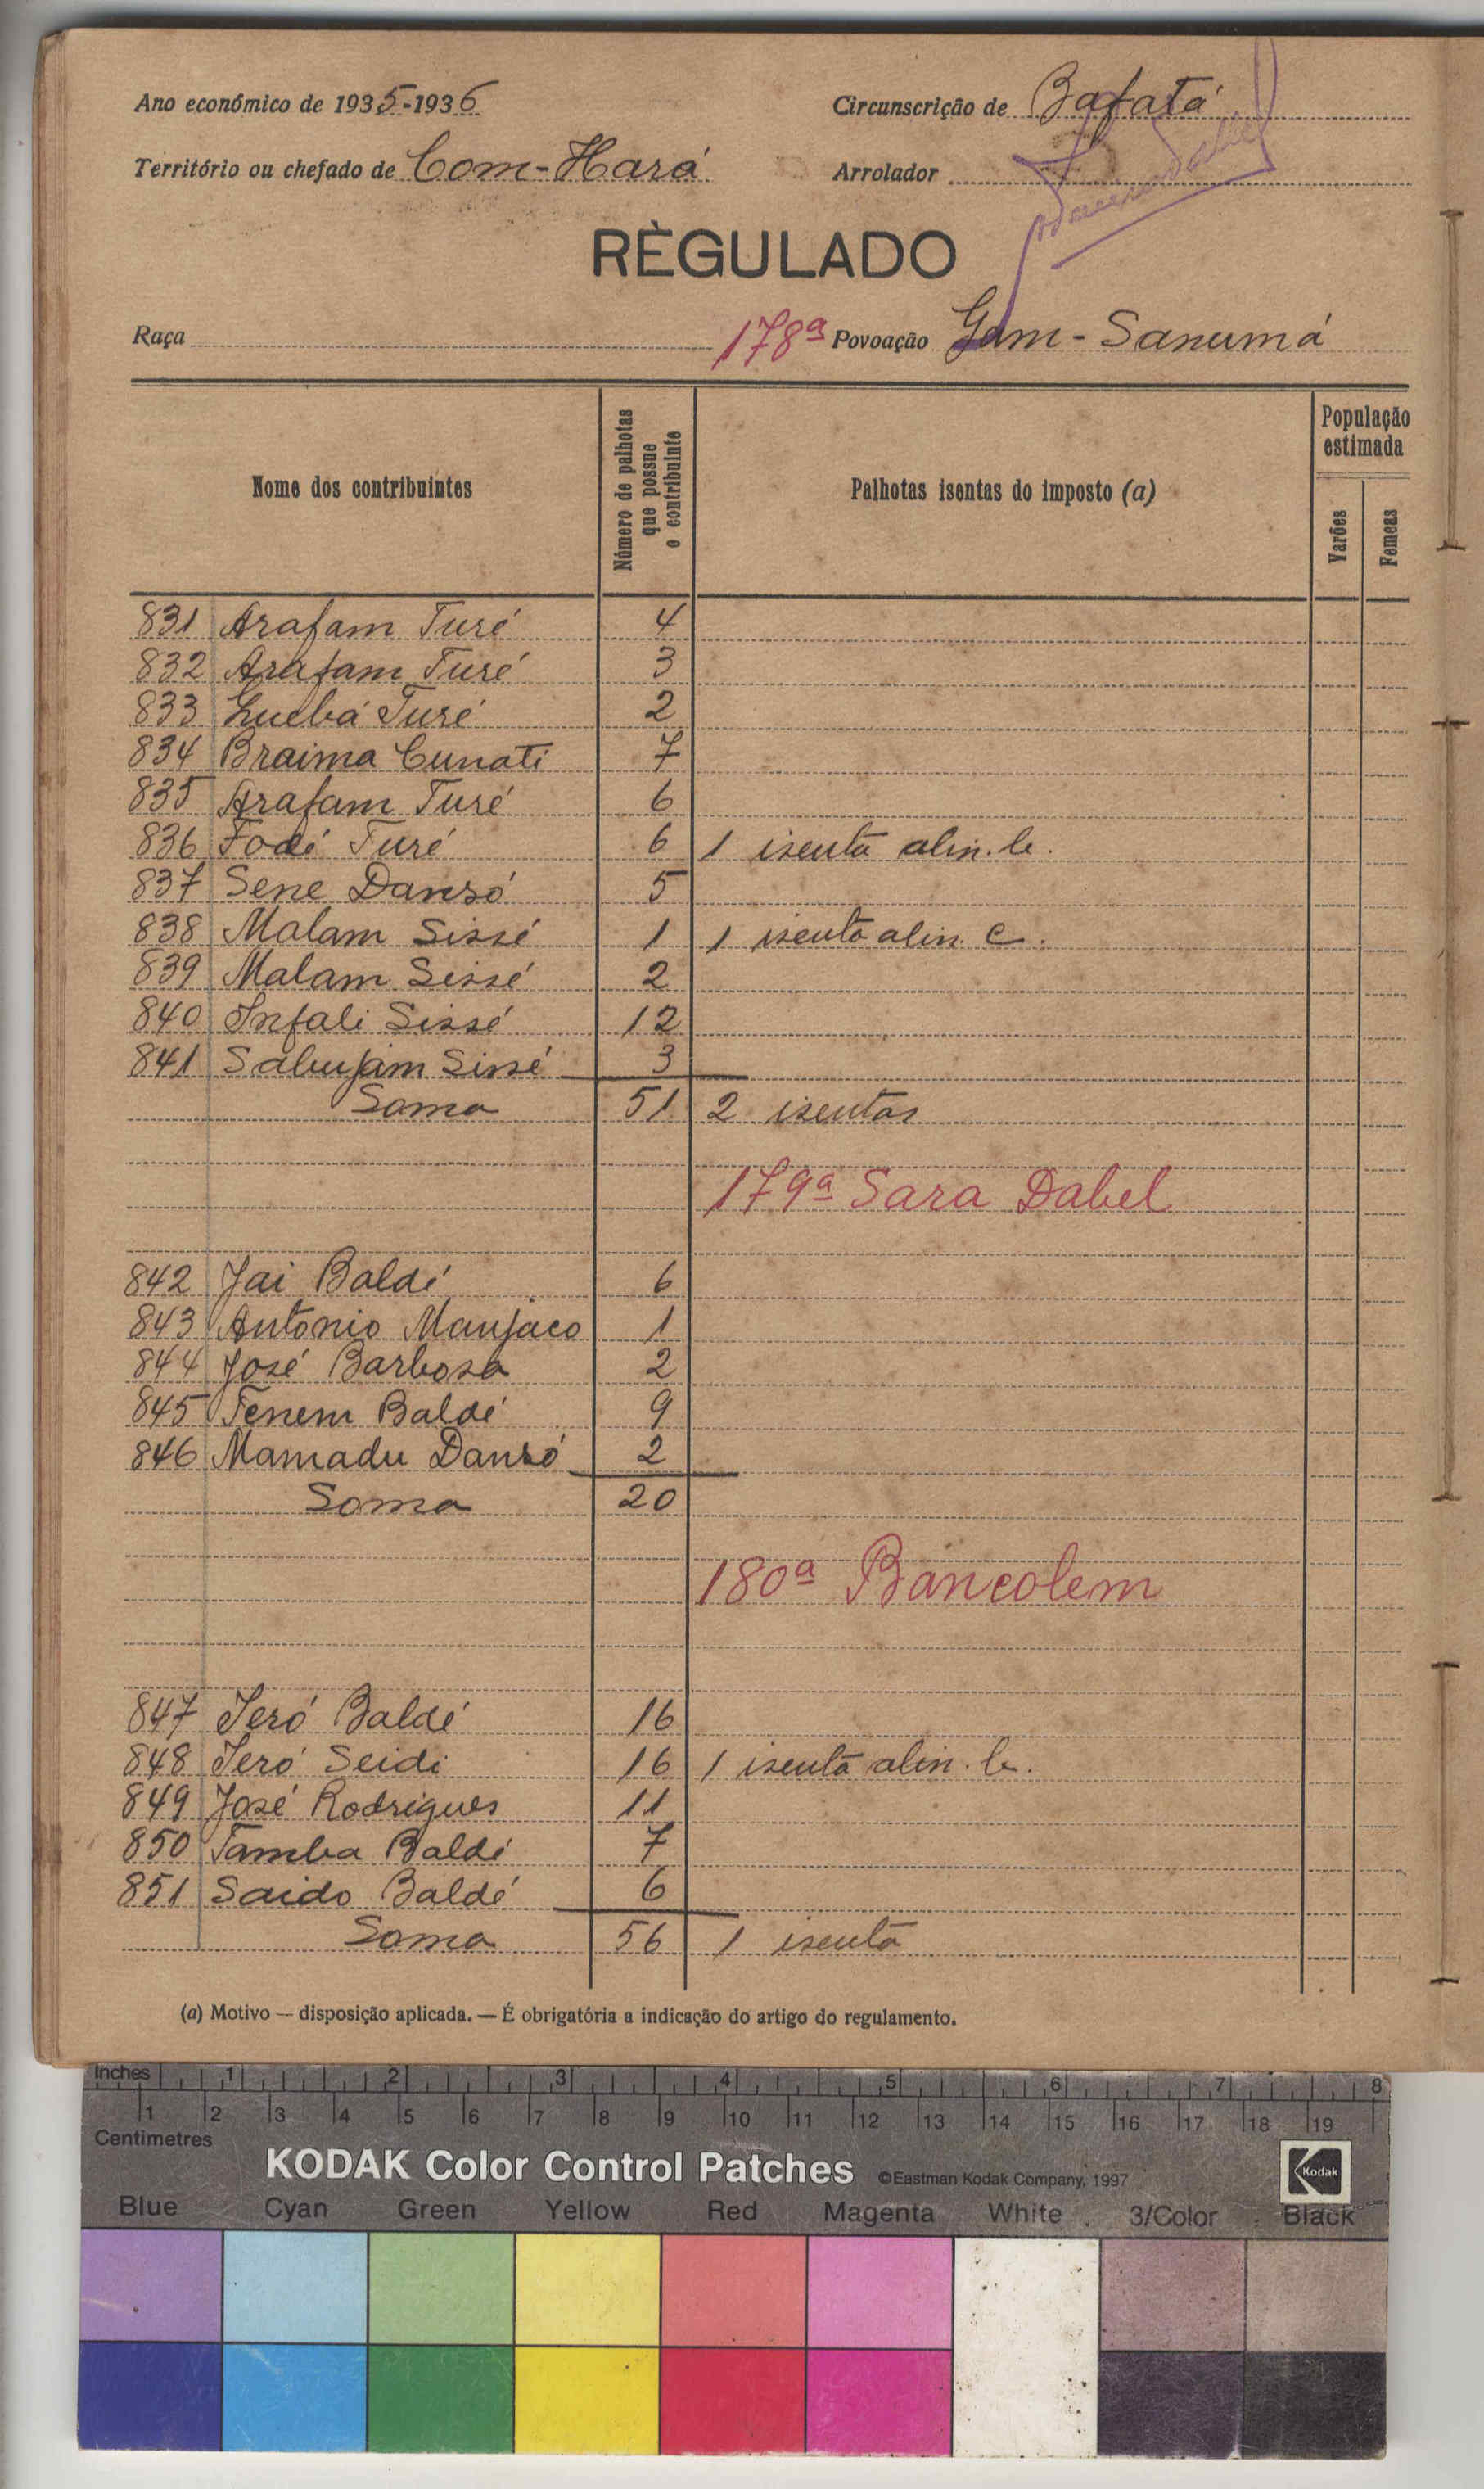 Ano económico de 1935-1936
Circunscrição de Bafatá
Território ou chefado de Com-Hará
Arrolador
RÈGULADO
Raça
178ª Povoação Gam-Sanumá
Nome dos contribuintes
Número de palhotas que possue o contribuinte
Palhotas isentas do imposto (a)
População estimada
Varões
Femeas
831 Arafam Turé 4
832 Arafam Turé 3
833 Luebá Turé 2
834 Braima Cunati 7
835 Arafam Turé 6
836 Fodé Turé 6 1 isenta alin. b.
837 Sene Dansó 5
838 Malam Sissé 1 1 isenta alin. c.
839 Malam Sissé 2
840 Infali Sissé 12
841 Sabujam Sissé 3
Soma 51 2 isentas
179ª Sara Dabel
842 Jai Baldé 6
843 António Manjaco 1
844 José Barbosa 2
845 Tenem Baldé 9
846 Mamadu Dansó 2
Soma 20
180ª Bancolem
847 Jeró Baldé 16
848 Jeró Seidi 16 1 isenta alin. b.
849 José Rodrigues 11
850 Tamba Baldé 7
851 Saido Baldé 6
Soma 56 1 isenta
(a) Motivo — disposição aplicada. — É obrigatória a indicação do artigo do regulamento.
Inches 1 2 3 4 5 6 7 8
1 2 3 4 5 6 7 8 9 10 11 12 13 14 15 16 17 18 19
Centimetres
KODAK Color Control Patches ©Eastman Kodak Company, 1997 Kodak
Blue Cyan Green Yellow Red Magenta White 3/Color Black